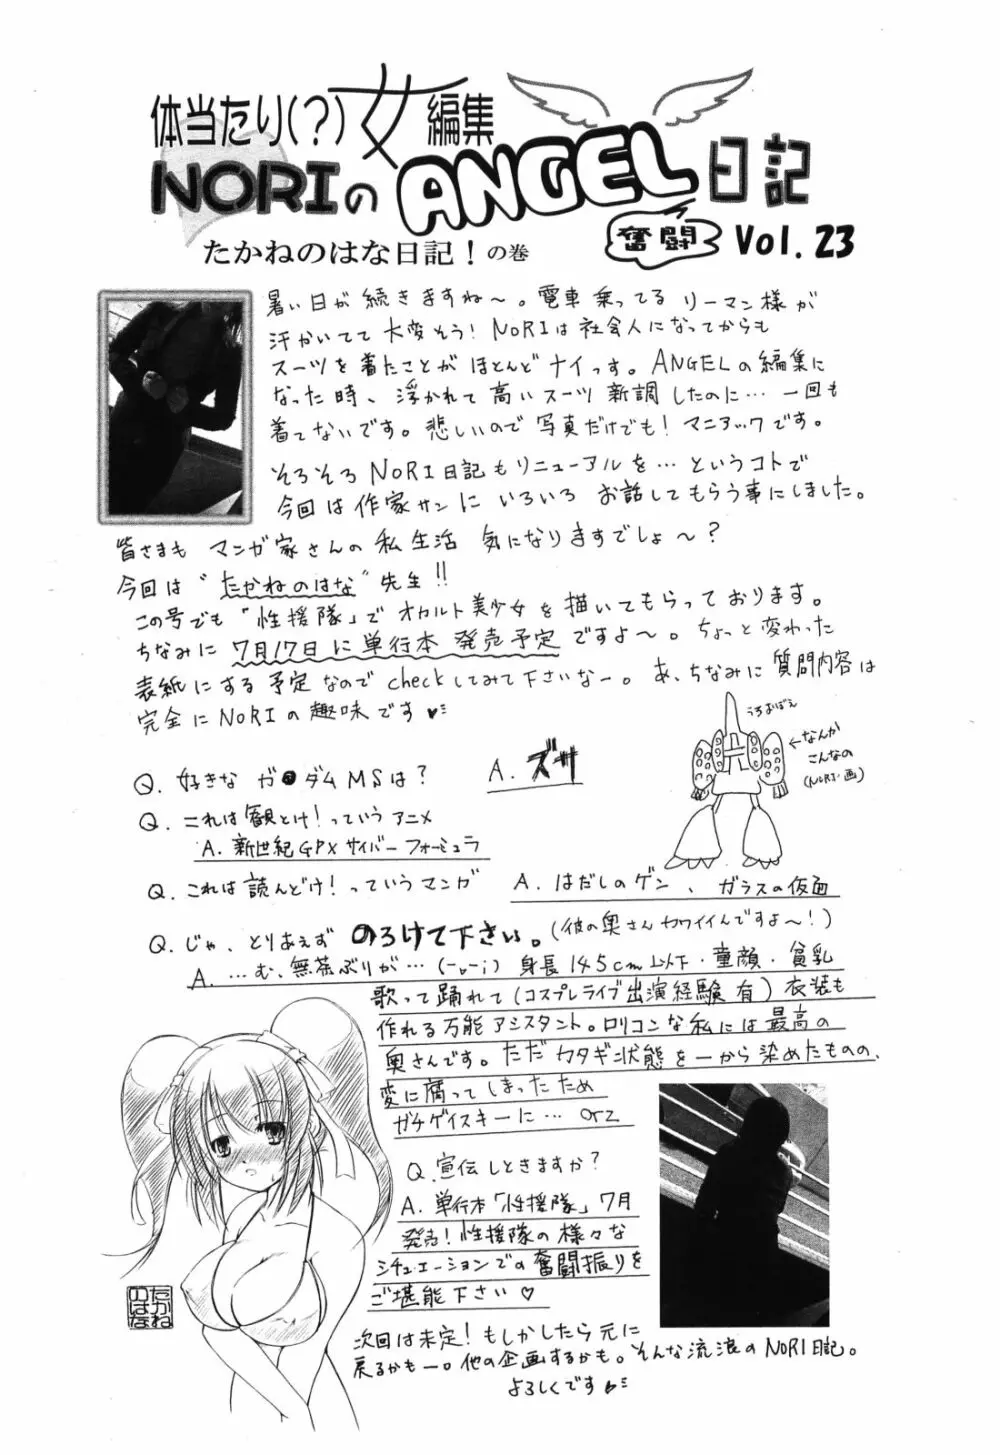 体当たり(?)女編集
NORIのANGEL日記
奮闘 Vol.23
たかねのはな日記!の巻
暑い日が続きますね〜。電車乗ってるリーマン様が
汗かいてて大変そう!NORIは社会人になってからも
スーツを着たことがほとんどナイっす。ANGELの編集に
なった時、浮かれて高いスーツ新調したのに…一回も
着てないです。悲しいので写真だけでも!マニアックです。
そろそろNORI日記もリニューアルを…というコトで
今回は作家サンにいろいろお話してもらう事にしました。
皆さまもマンガ家さんの私生活気になりますでしょ〜?
今回は“たかねのはな”先生!!
この号でも「性援隊」でオカルト美少女を描いてもらっております。
ちなみに7月17日に単行本発売予定ですよ〜。ちょっと変わった
表紙にする予定なのでcheckしてみて下さいなー。あ、ちなみに質問内容は
完全にNORIの趣味です
うろおぼえ
←なんか
こんなの
(NORI・画)
Q. 好きなガ●ダムMSは?
A. ズサ
Q. これは観とけ!っていうアニメ
A. 新世紀GPXサイバーフォーミュラ
Q. これは読んどけ!っていうマンガ
A. はだしのゲン、ガラスの仮面
Q. じゃ、とりあえずのろけて下さい。(彼の奥さんカワイイんですよ〜!)
A. …む、無茶ぶりが…(-ｏ-;)身長145cm以下・童顔・貧乳
歌って踊れて(コスプレライブ出演経験有)衣装も
作れる万能アシスタント。ロリコンな私には最高の
奥さんです。ただカタギな状態を一から染めたものの、
変に腐ってしまったため
ガチゲイスキーに… orz
Q. 宣伝しときますか?
A. 単行本「性援隊」7月
発売!性援隊の様々な
シチュエーションでの奮闘振りを
ご堪能下さい♡
たかね
のはな
次回は未定!もしかしたら元に
戻るかもー。他の企画するかも。そんな流浪のNORI日記。
よろしくです